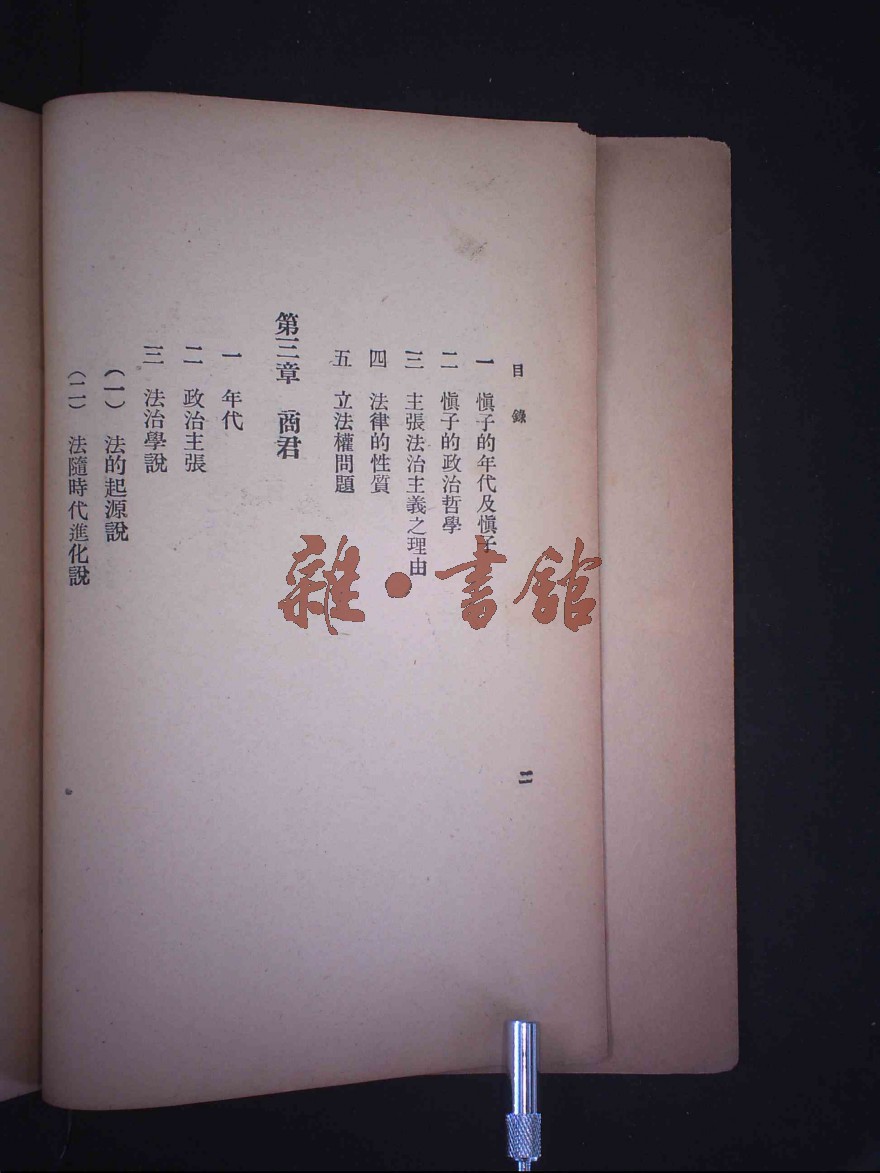 目錄
一 慎子的年代及慎子
二 慎子的政治哲學
三 主張法治主義之理由
四 法律的性質
五 立法權問題
第三章 商君
一 年代
二 政治主張
三 法治學說
(一) 法的起源說
(二) 法隨時代進化說
二
雜•書館